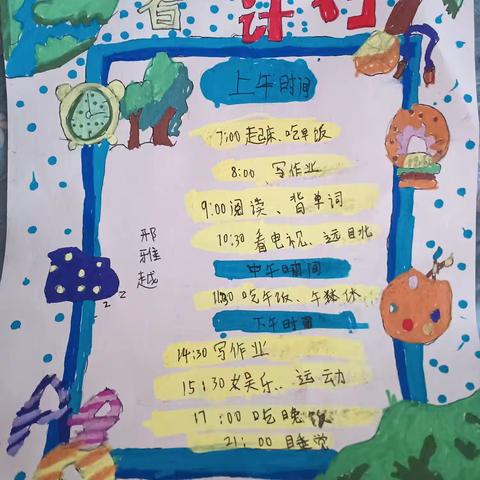 计划
上午时间
7:00 起床、吃早饭
8:00 写作业
9:00 阅读、背单词
10:30 看电视、远目北
中午时间
11:30 吃午饭、午休
下午时间
14:30 写作业
15:30 娱乐、运动
17:00 吃晚饭
21:00 睡觉
邢雅越